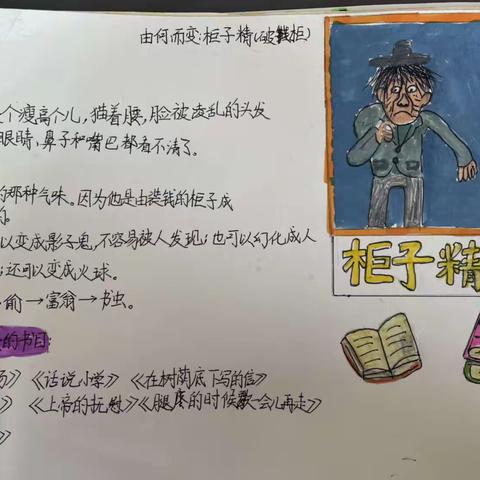 由何而变:柜子精(破钱柜)
个瘦高个儿,猫着腰,脸被凌乱的头发
眼睛,鼻子和嘴巴都看不清了。
的那种气味。因为他是由装钱的柜子成
的。
以变成影子鬼,不容易被人发现;也可以幻化成人
;还可以变成火球。
偷→富翁→书虫。
的书目:
》《话说小学》《在树荫底下写的信》
》《上帝的抚慰》《腿疼的时候歇一会儿再走》
》
柜子精